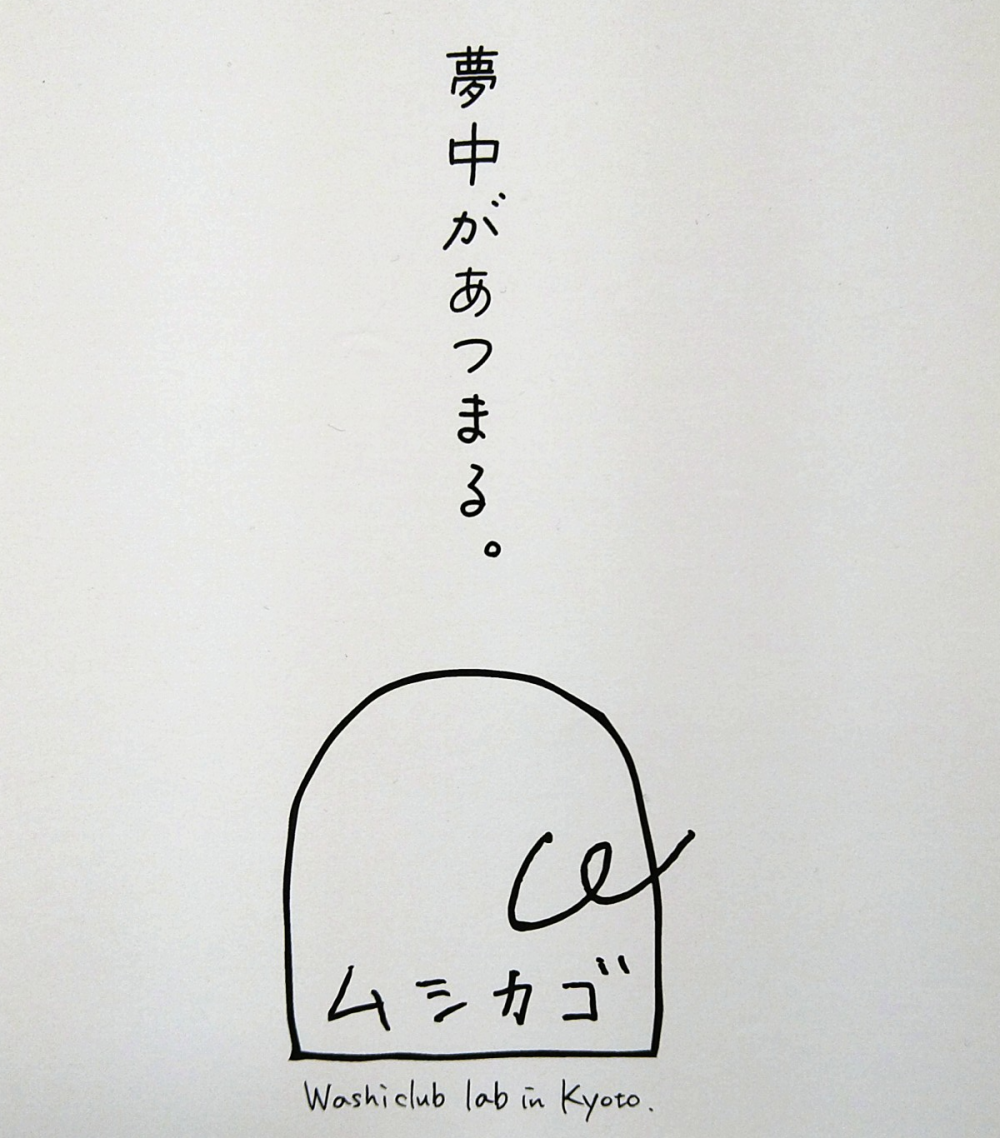 夢中があつまる。
ムシカゴ
Washiclub lab in Kyoto.